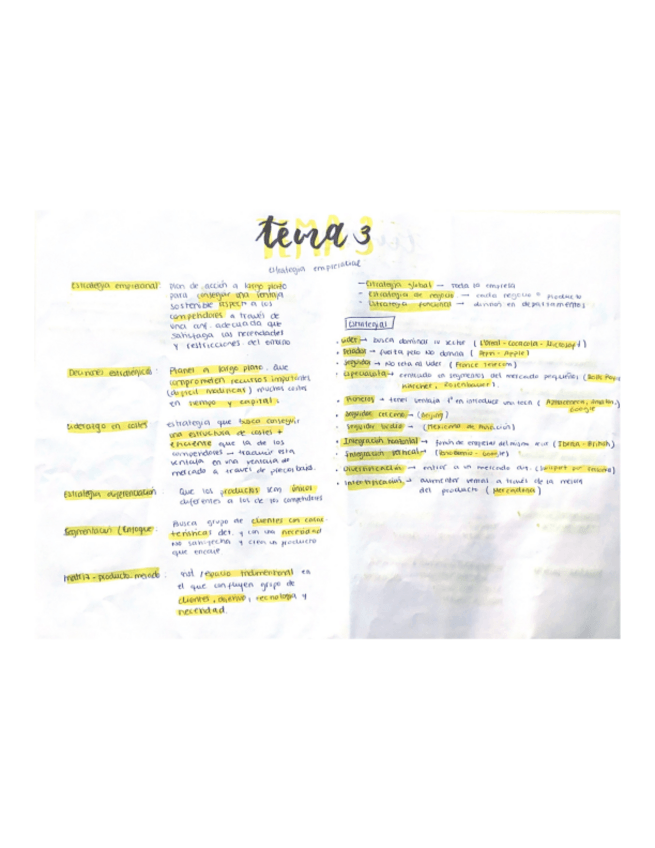 tema 3
estrategia empresarial
Estrategia empresarial: plan de acción a largo plazo
para conseguir una ventaja
sostenible respecto a los
competidores a través de
una adecuada que
satisfaga las necesidades
y restricciones del entorno
Decisiones estratégicas: Planes a largo plazo. Que
comprometen recursos importantes
(difícil modificar) muchos costes
en tiempo y capital.
Liderazgo en costes estrategia que busca conseguir
una estructura de costes +
eficiente que la de los
competidores → traducir esta
ventaja en una ventaja de
mercado a través de precio bajo.
Estrategia diferenciación Que los productos sean únicos
diferentes a los de los competidores
Segmentación (Enfoque: Busca grupo de clientes con carac
terísticas det. y con una necesidad
no satisfecha y crea un producto
que encaje
matriz-producto-mercado: espacio tridimensional en
el que confluyen grupo de
clientes, , tecnología y
necesidad.
- Estrategia global → toda la empresa
- Estrategia de negocio → cada negocio producto
- Estrategia funcional → división en departamentos
· Líder → busca dominar su (L'Oreal - Cocacola - Microsoft)
· Retador → fuerte pero no domina (Pepsi - Apple)
· Seguidor → No reta al líder (France Telecom)
· Especialista → centrado en segmentos del mercado pequeños
Kärcher,
· Pioneros → tener ventaja 1º en introducir una tecn ( Amazon,
Google
· Seguidor →
· Seguidor tardío →
· Integración horizontal → fusión de empresas del mismo (Iberia - British)
· Integración → - Google)
· Diversificación → entrar a un mercado
· Intensificación → aumentar ventas a través de la mejora
del producto (Mercadona)